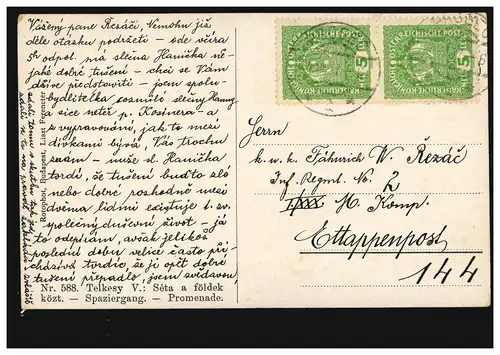 Vážený pane Řezáči, Nemohu již
déle otázku podržeti – sde včera
5h odpol. má slečna Hanička ně-
jaké dobré tušení – chci se Vám
dříve představiti – jsem spolu-
bydlitelka cozmilé slečny Hanny
a sice neteř p. Kosinera – a
z vypravování, jak to mezi
dívkami bývá, Vás trochu
znám – může sl. Hanička
tvrdí, že tušení buďto zlé
nebo dobré rozhodně mezi
dvěma lidmi existuje t. zv.
společný duševní život – já
to odpírám, avšak jelikož
poslední dobou velice často při-
cházívá tvrdíc, že ji opět dobré
tušení přepadlo, jsem zvědavou,
Rotophot, Budapest. Liszt Ferencz-tér
Nr. 588. Telkesy V.: Séta a földek
közt. — Spaziergang. — Promenade.
KAISERLICHE KÖNIGLICHE ÖSTERREICHISCHE POST
5
KAISERLICHE KÖNIGLICHE ÖSTERREICHISCHE POST
5
Herrn
k. u. k. Fähnrich W. Řezáč
Inf. Regmt. No. 2
M. Komp.
Ettappenpost
144